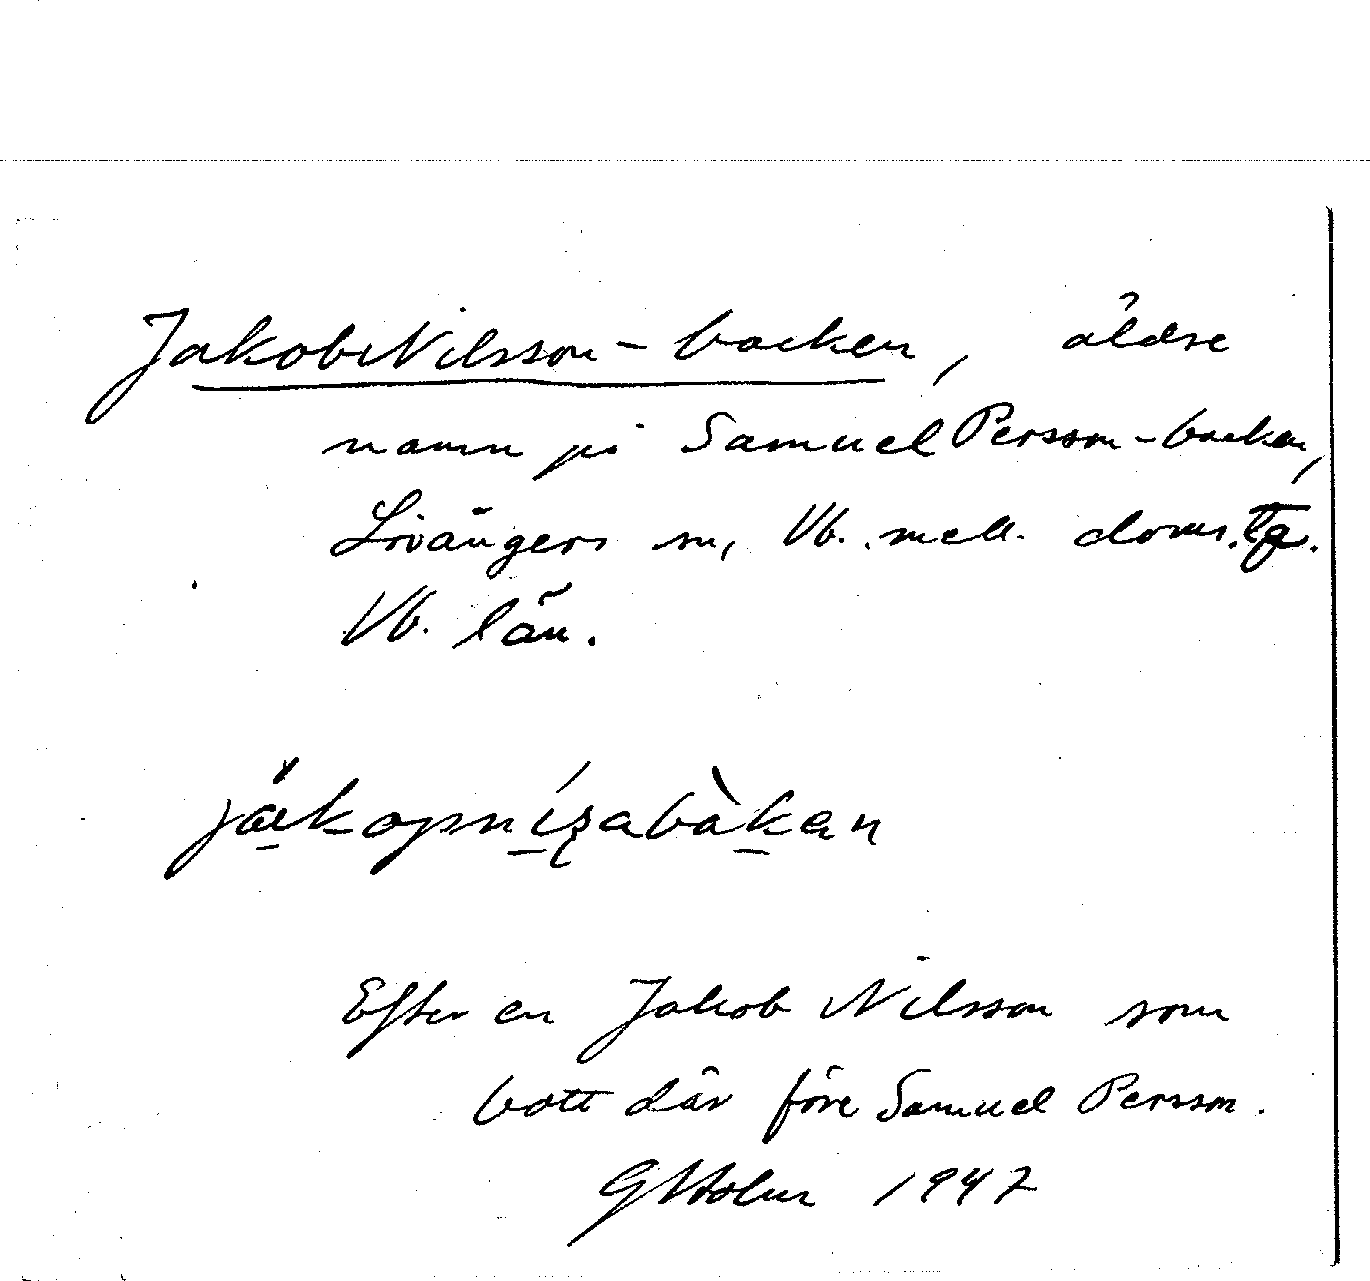 Jakob Nilsson-backen, äldre
namn på Samuel Persson-backen,
Lövångers sn, Vb. mell. doms. tg.
Vb. län.
Efter en Jakob Nilsson som
bott där före Samuel Persson.
G Holm 1947